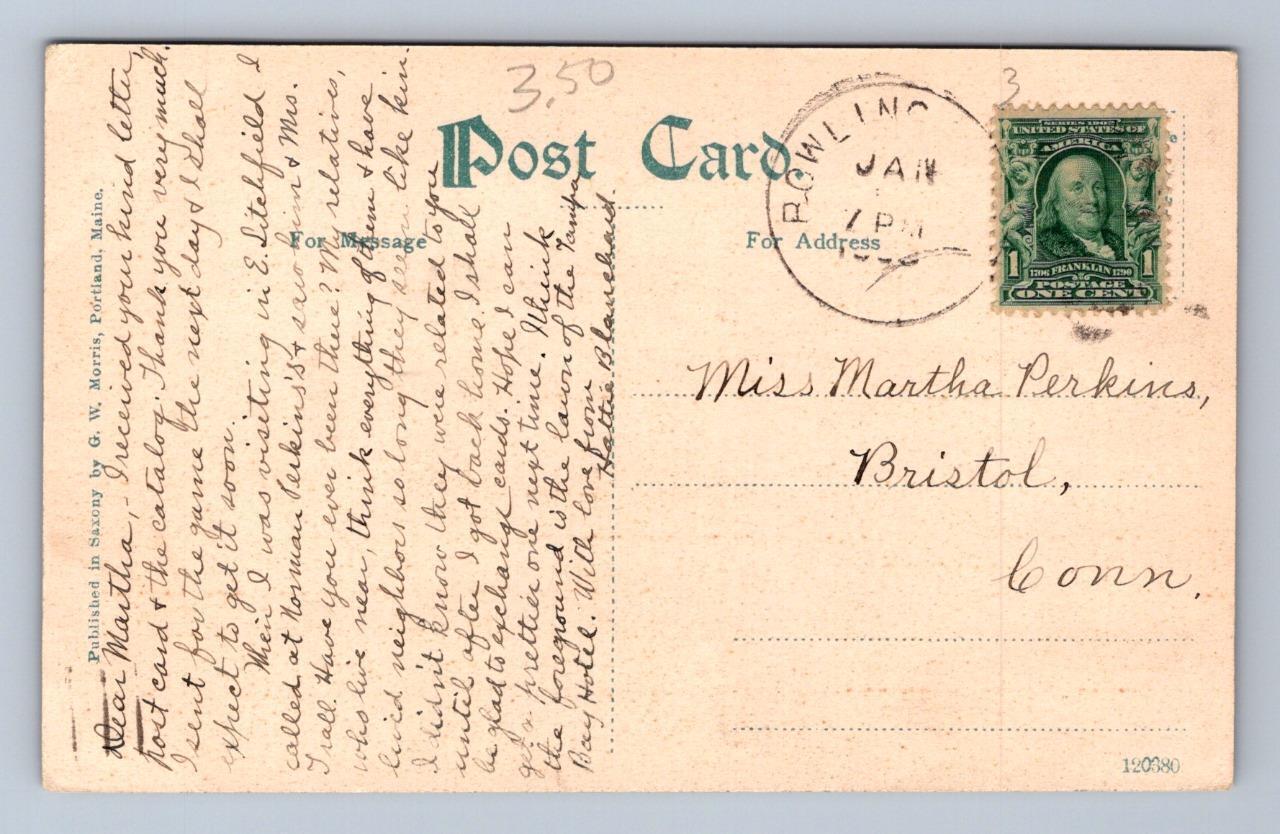 3.50
3
Post Card.
For Message
For Address
Published in Saxony by G. W. Morris, Portland, Maine.
Dear Martha,- I received your kind letter,
post card & the catalog. Thank you very much.
I sent for the game the next day & I shall
expect to get it soon.
When I was visiting in E. Litchfield I
called at Norman Perkins's & saw him & Mrs.
Trall. Have you ever been there? My relatives,
who live near, think everything of them & have
livid neighbors so long they seem like kin.
I didn't know they were related to you
until after I got back home. I shall
be glad to exchange cards. Hope I can
get a prettier one next time. I think
the foreground is the lawn of the Tampa
Bay Hotel. With love from
Hattie Blanchard.
OWLING
JAN
7 PM
SERIES 1902
UNITED STATES OF
AMERICA
1 1
1706 FRANKLIN 1790
POSTAGE
ONE CENT
Miss Martha Perkins,
Bristol,
Conn.
120380